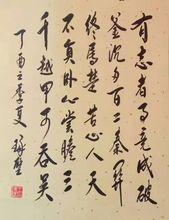 有志者事竟成破
釜沉舟百二秦关
终属楚苦心人天
不负卧心尝胆三
千越甲可吞吴
丁酉之季夏